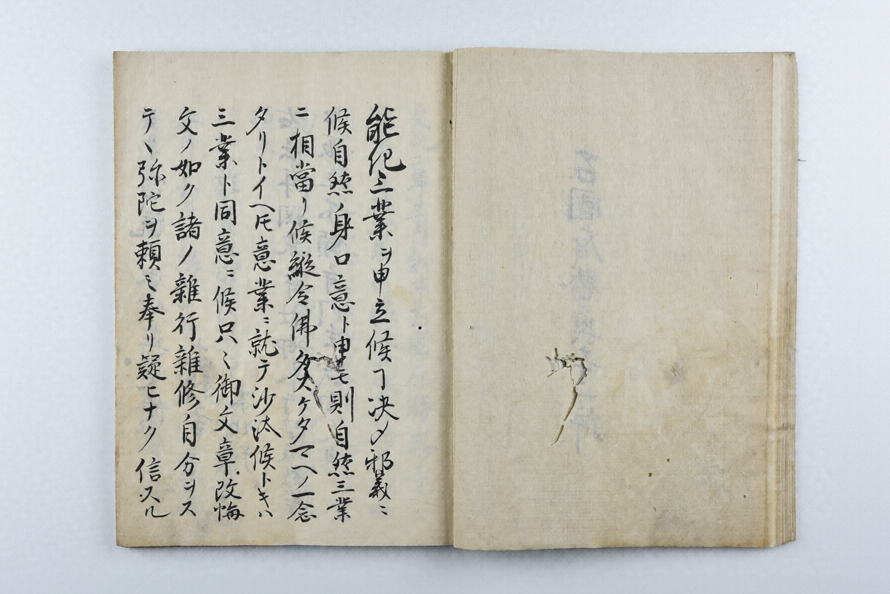 能化三業ヲ申立候ヿ決〆邪義ニ
候自然ノ身口意ト申セ𪜈則自然三業
ニ相當リ候縦令佛タスケタマヘノ一念
タリトイヘ𪜈意業ニ就テ沙汰候トキハ
三業ト同意ニ候只〻御文章改悔
文ノ如ク諸ノ雜行雜修自分ヲス
テヽ弥陀ヲ頼ミ奉リ疑ヒナク信スル